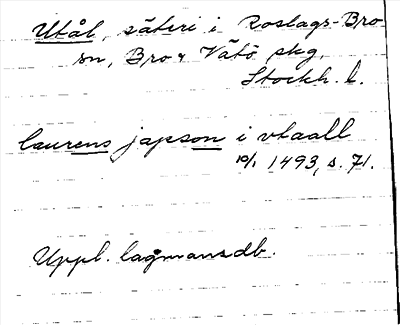 Utål, säteri i Roslags-Bro
sn, Bro o. Vätö skg,
Stockh. l.
laurens japson i vtaall
10/1 1493, s. 71.
Uppl. lagmansdb.